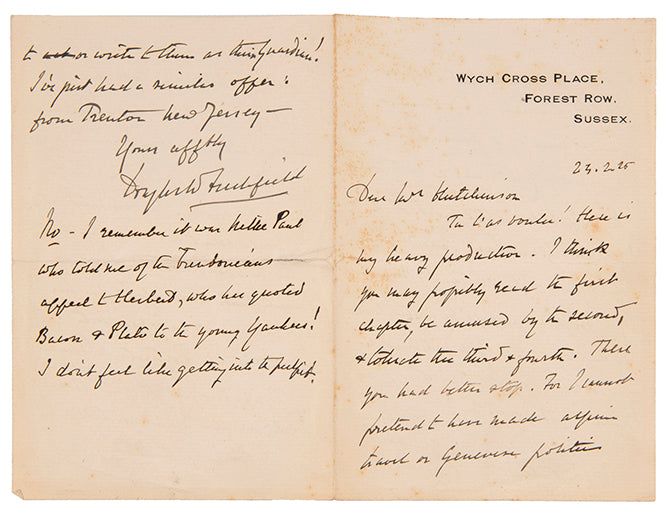 WYCH CROSS PLACE,
FOREST ROW.
SUSSEX.
Dear Mrs Hutchinson
Tu l'as voulu! Here is
my heavy production. I think
you may possibly read the first
chapter, be amused by the second,
& tolerate the third & fourth. There
you had better stop. For I cannot
pretend to have made alpine
travel or Genevese politics
to or write to them as their Guardian!
I've just had a similar offer:
from Trenton New Jersey —
Yours affly
Douglas W Freshfield
No - I remember it was Paul
who told me of the Trentonians
appeal to Herbert, who has quoted
Bacon & Plato to the young Yankees!
I don't feel like getting into the pulpit.